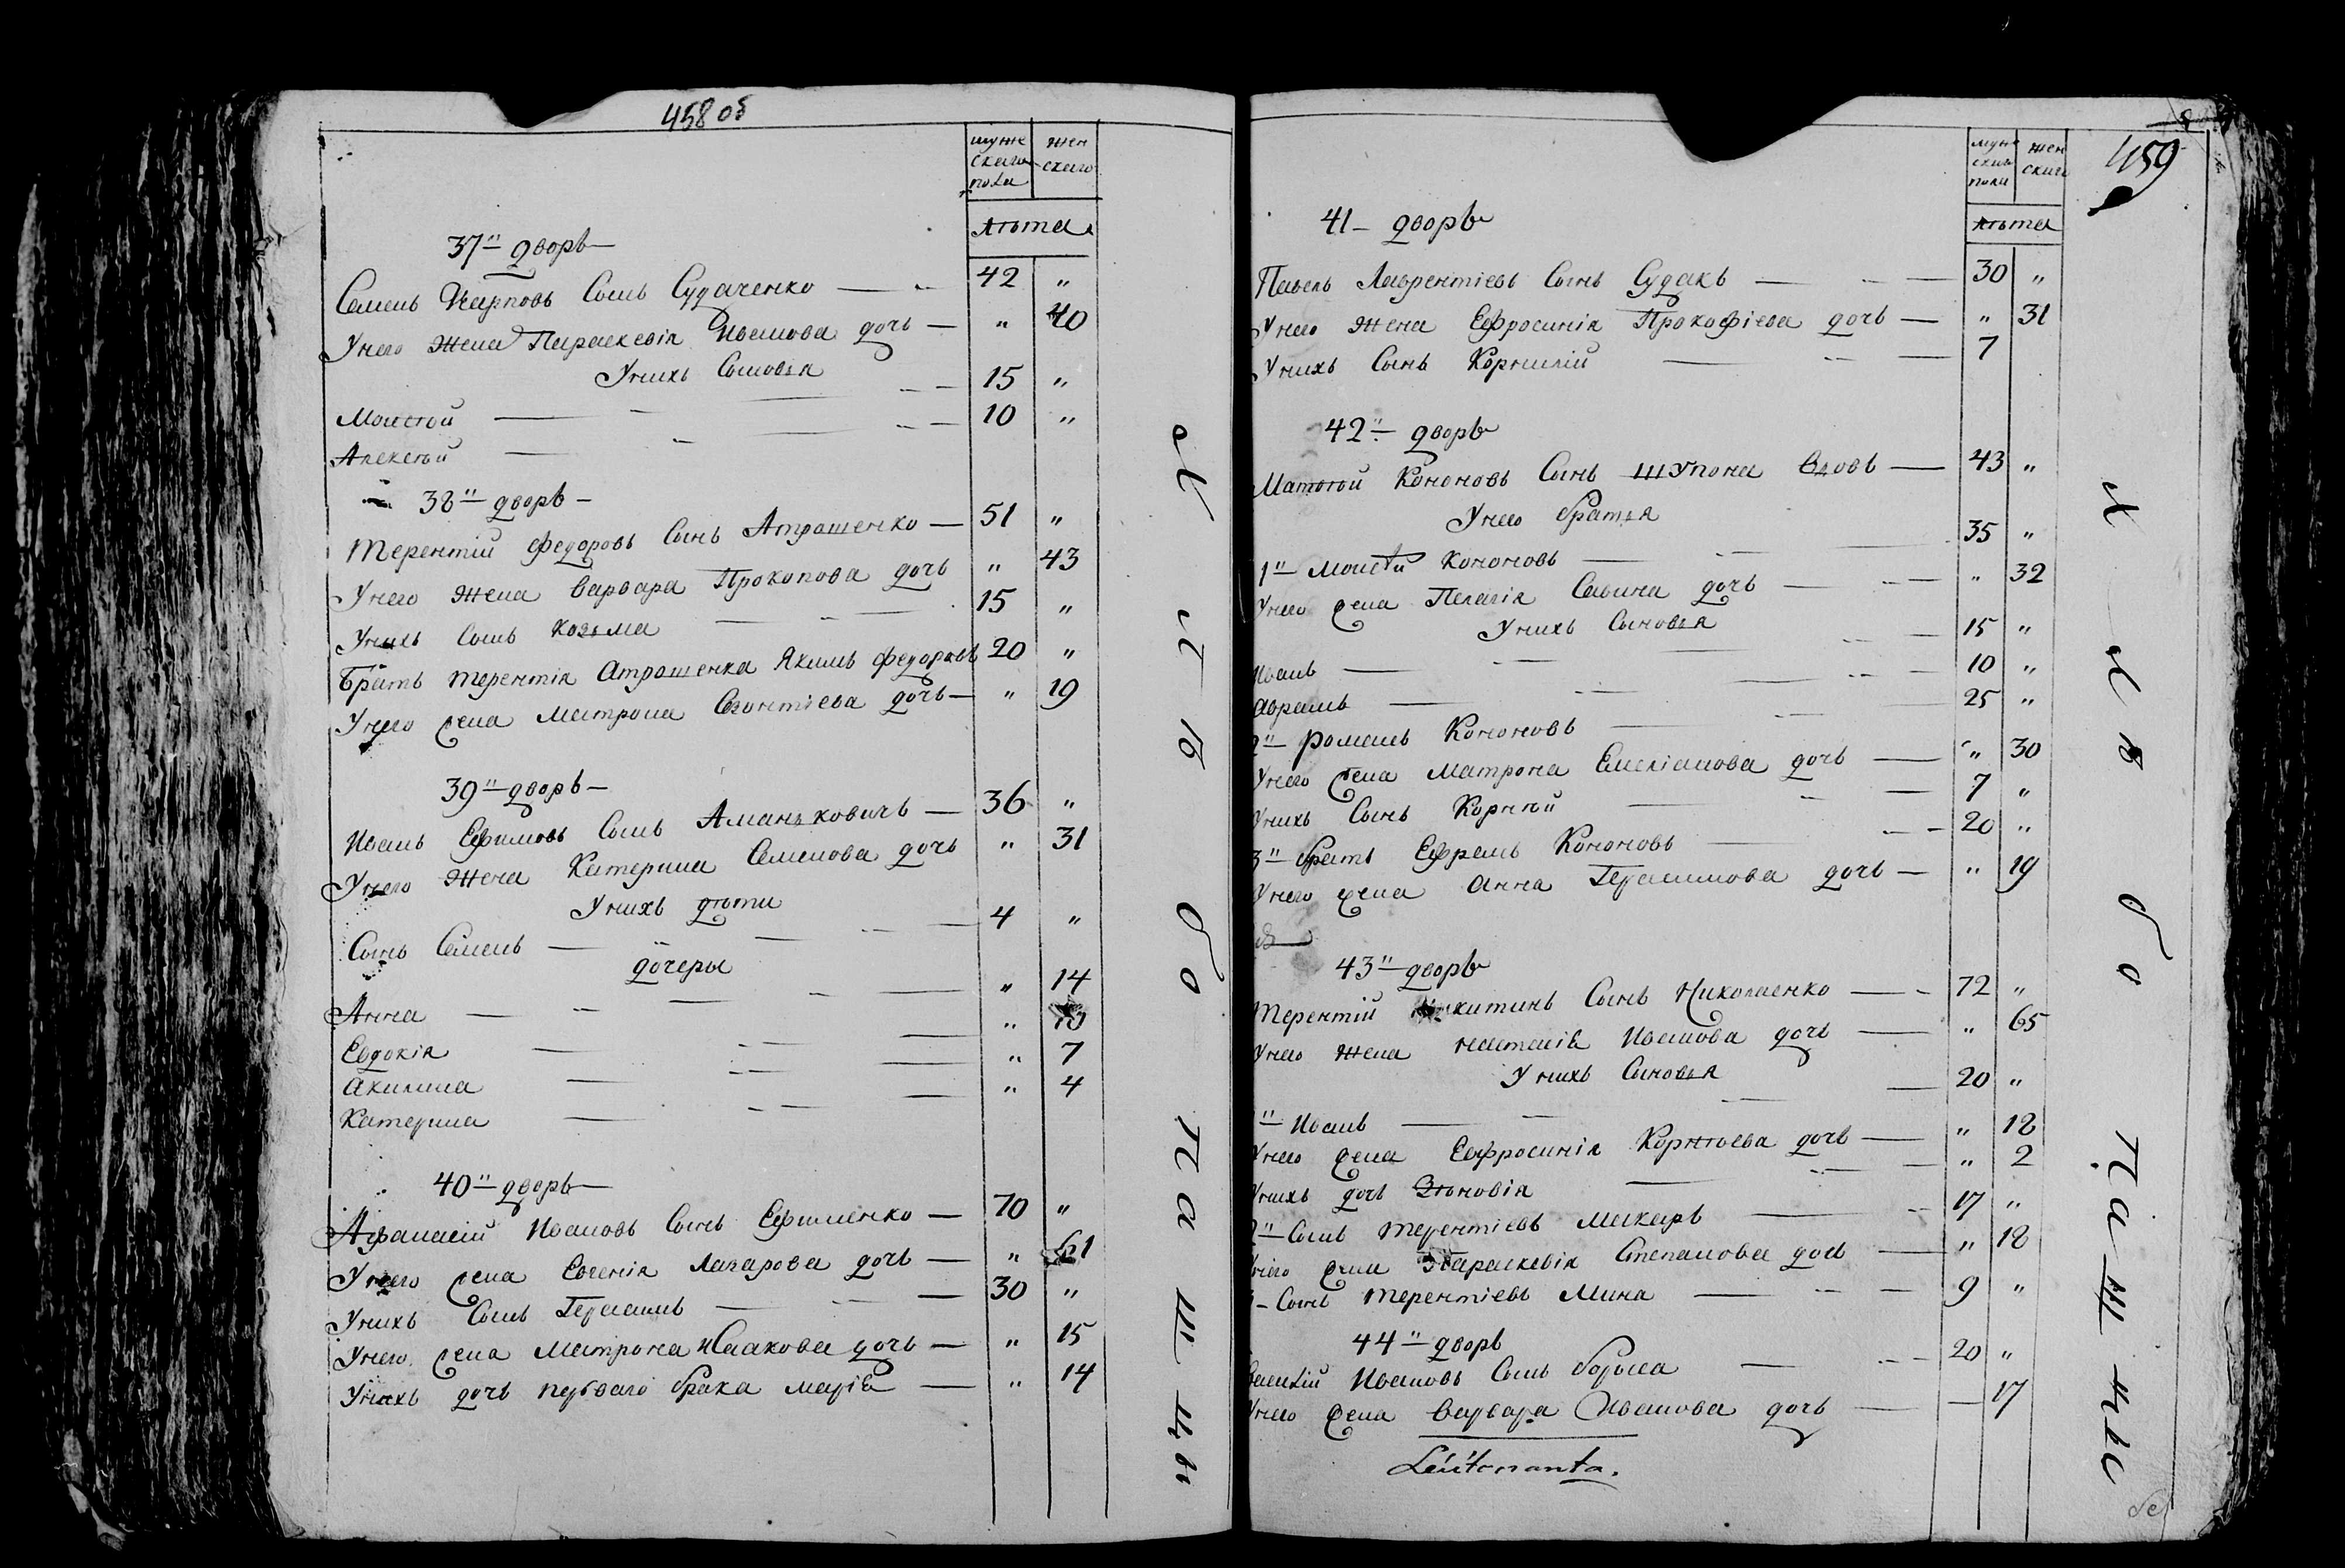 458 об
муже ского пола
жен ского
лѣта
37" дворъ
Семенъ Карповъ Сынъ Судаченко 42 "
Унего Жена Параскевія Иванова дочь " 40
Унихъ Сыновья
Моисѣй 15 "
Алексѣй 10 "
38" дворъ
Терентій Федоровъ Сынъ Атрошенко 51 "
Унего Жена Варвара Прокопова дочь " 43
Унихъ Сынъ Козьма 15 "
Братъ Терентія Атрошенка Якимъ Федоровъ 20 "
Унего жена Матрона Леонтіева дочь " 19
39" дворъ
Иванъ Ефимовъ Сынъ Аманьковичъ 36 "
Унего Жена Катерина Семенова дочь " 31
Унихъ дѣти
Сынъ Семенъ 4 "
дочеры
Анна " 14
Евдокія " 13
Акилина " 7
Катерина " 4
40" дворъ
Афанасій Ивановъ Сынъ Ефименко 70 "
Унего жена Евгенія Лазарова дочь " 61
Унихъ Сынъ Герасимъ 30 "
Унего жена Матрона Исакова дочь " 15
Унихъ дочь перваго брака Марія " 14
Хлѣбопашцы
459
муже ского пола
жен ского
лѣта
41 дворъ
Павелъ Лаврентіевъ Сынъ Судакъ 30 "
Унего Жена Ефросинія Прокофіева дочь " 31
Унихъ Сынъ Корнилій 7
42" дворъ
Матѳѣй Кононовъ Сынъ Шупона Вдовъ 43 "
Унего братья
1" Моисѣй Кононовъ 35 "
Унего жена Пелагія Савина дочь " 32
Унихъ Сыновья
Иванъ 15 "
Аврамъ 10 "
2" Романъ Кононовъ 25 "
Унего жена Матрона Емеліанова дочь " 30
Унихъ Сынъ Корнѣй 7 "
3" братъ Ефремъ Кононовъ 20 "
Унего жена Анна Герасимова дочь " 19
43" дворъ
Терентій Никитинъ Сынъ Николаенко 72 "
Унего Жена Настасія Иванова дочь " 65
Унихъ Сыновья
1" Иванъ 20 "
Унего жена Евфросинія Корнѣева дочь " 18
Унихъ дочь Зѣновія " 2
2" Сынъ Терентіевъ Макаръ 17 "
Унего жена Параскевія Степанова доч " 18
Сынъ Терентіевъ Мина 9 "
44" дворъ
Василій Ивановъ Сынъ Борыса 20 "
Унего жена Варвара Иванова дочь 17
Leütenanta.
Хлѣбопашцы